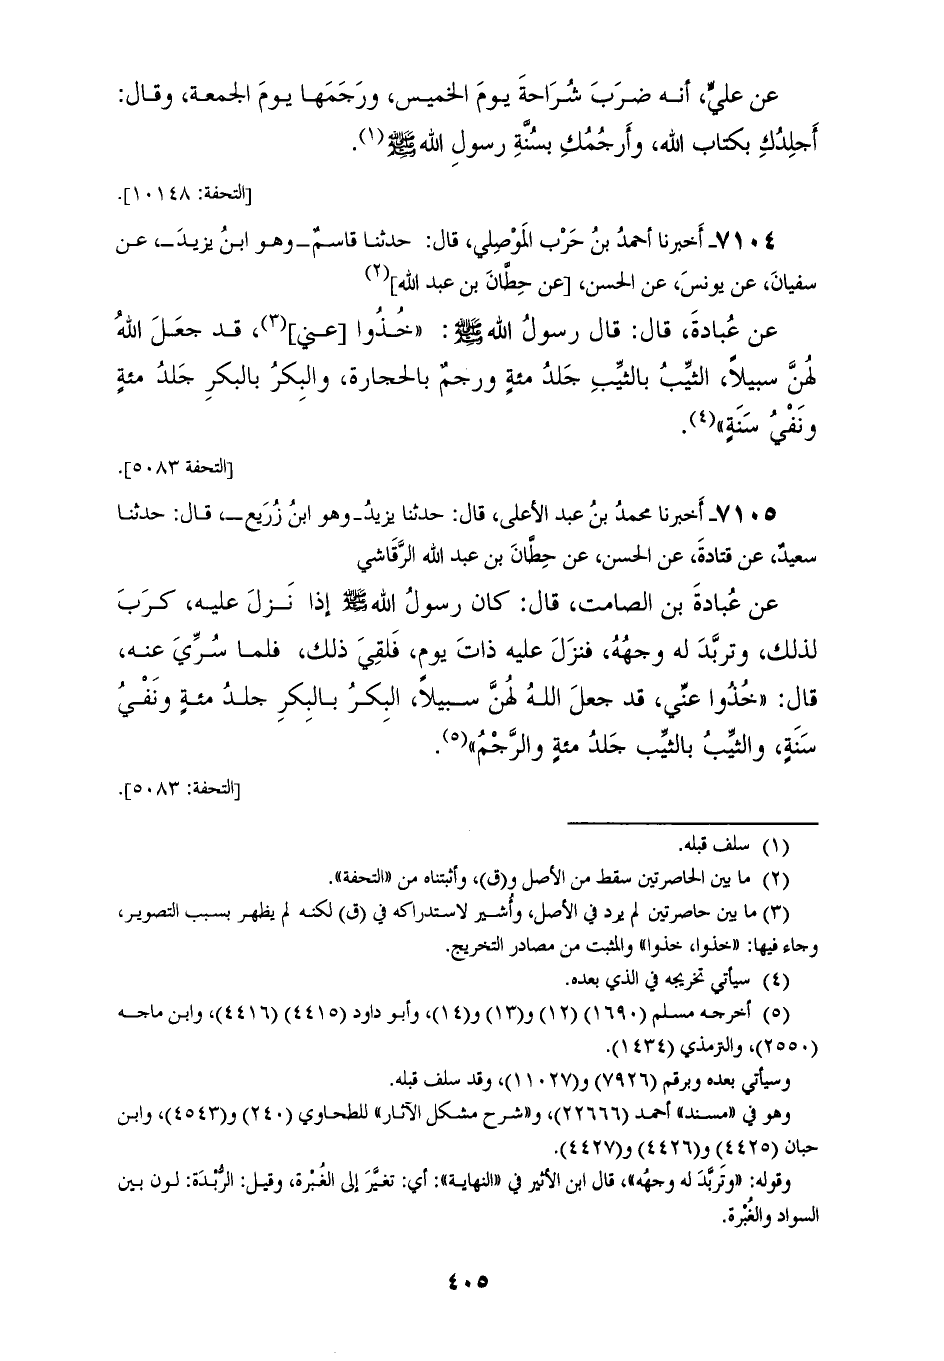 عن عليٍّ، أنه ضرَبَ شُرَاحةَ يومَ الخميس، ورَجَمَها يومَ الجمعة، وقال:
أَجلِدُكِ بكتاب الله، وأَرجُمُكِ بسُنَّةِ رسولِ الله ﷺ(١).
[التحفة: ١٠١٤٨].
٧١٠٤ـ أَخبرنا أحمدُ بنُ حَرْب المَوْصِلي، قال: حدثنا قاسمٌ ـ وهو ابنُ يزيدَ ـ، عن
سفيانَ، عن يونسَ، عن الحسن، [عن حِطَّانَ بن عبد الله](٢)
عن عُبادةَ، قال: قال رسولُ الله ﷺ: «خُذُوا [عني](٣)، قد جعَلَ اللهُ
لهُنَّ سبيلاً، الثيِّبُ بالثيِّبِ جَلدُ مئةٍ ورجمٌ بالحجارة، والبِكرُ بالبِكرِ جَلدُ مئةٍ
ونَفْيُ سَنَةٍ»(٤).
[التحفة ٥٠٨٣].
٧١٠٥ـ أَخبرنا محمدُ بنُ عبد الأعلى، قال: حدثنا يزيدُ ـ وهو ابنُ زُرَيع ـ، قال: حدثنا
سعيدٌ، عن قتادةَ، عن الحسن، عن حِطَّانَ بن عبد الله الرَّقَاشي
عن عُبادةَ بن الصامت، قال: كان رسولُ الله ﷺ إذا نَزلَ عليه، كَرَبَ
لذلك، وتربَّدَ له وجهُهُ، فنزَلَ عليه ذاتَ يوم، فَلقِيَ ذلك، فلما سُرِّيَ عنه،
قال: «خُذُوا عنِّي، قد جعلَ اللهُ لهُنَّ سبيلاً، البِكرُ بالبِكرِ جلدُ مئةٍ ونَفْيُ
سَنَةٍ، والثيِّبُ بالثيِّب جَلدُ مئةٍ والرَّجْمُ»(٥).
[التحفة: ٥٠٨٣].
(١) سلف قبله.
(٢) ما بين الحاصرتين سقط من الأصل و(ق)، وأثبتناه من «التحفة».
(٣) ما بين حاصرتين لم يرد في الأصل، وأُشير لاستدراكه في (ق) لكنه لم يظهر بسبب التصوير،
وجاء فيها: «خذوا، خذوا» والمثبت من مصادر التخريج.
(٤) سيأتي تخريجه في الذي بعده.
(٥) أخرجه مسلم (١٦٩٠) (١٢) و(١٣) و(١٤)، وأبو داود (٤٤١٥) (٤٤١٦)، وابن ماجه
(٢٥٥٠)، والترمذي (١٤٣٤).
وسيأتي بعده وبرقم (٧٩٢٦) و(١١٠٢٧)، وقد سلف قبله.
وهو في «مسند» أحمد (٢٢٦٦٦)، و«شرح مشكل الآثار» للطحاوي (٢٤٠) و(٤٥٤٣)، وابن
حبان (٤٤٢٥) و(٤٤٢٦) و(٤٤٢٧).
وقوله: «وتَربَّدَ له وجهُه»، قال ابن الأثير في «النهاية»: أي: تغيَّرَ إلى الغُبْرة، وقيل: الرُّبْدَة: لون بين
السواد والغُبْرة.
٤٠٥